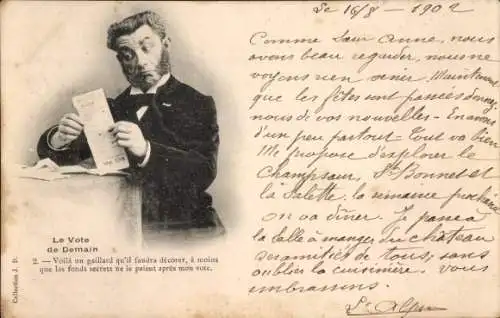 Le 16/8 - 1902
Comme Sœur Anne, nous
avons beau regarder, nous ne
voyons rien venir. Maintenant
que les fêtes sont passées donnez
nous de vos nouvelles - En avons
d'un peu partout - Tout va bien
Me propose d'explorer le
Champsaur, St Bonnet et
la Salette, la semaine prochaine
On va dîner. Je passe à
la salle à manger du château
amitiés de tous, sans
oublier la cuisinière. Vous
embrassons.
Le Vote
de Demain
2. — Voilà un gaillard qu'il faudra décorer, à moins
que les fonds secrets ne le paient après mon vote.
Collection J. D.